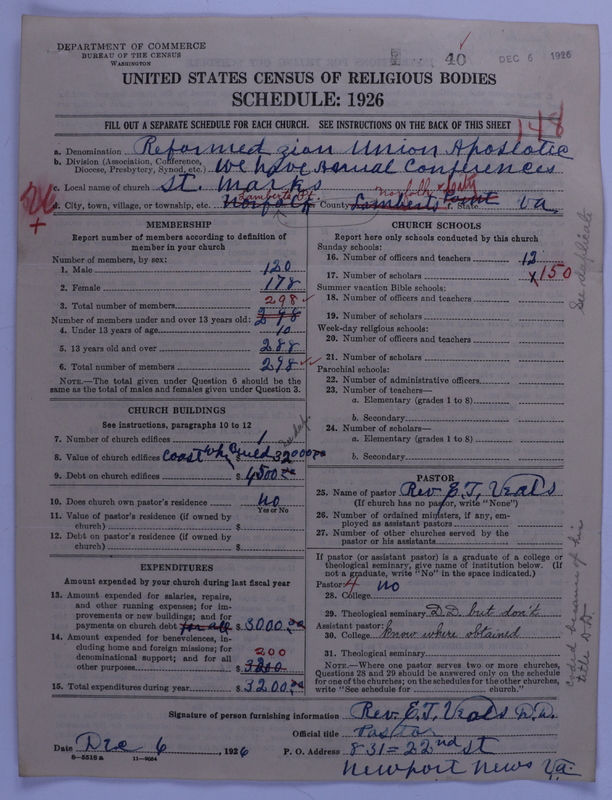 DEPARTMENT OF COMMERCE
BUREAU OF THE CENSUS
WASHINGTON
40
DEC 6 1926
UNITED STATES CENSUS OF RELIGIOUS BODIES
SCHEDULE: 1926
FILL OUT A SEPARATE SCHEDULE FOR EACH CHURCH. SEE INSTRUCTIONS ON THE BACK OF THIS SHEET
148
a. Denomination Reformed Zion Union Apostolic
b. Division (Association, Conference, Diocese, Presbytery, Synod, etc.) We have Annual Conferences
c. Local name of church St. Marks
Lamberts Pt. Norfolk
d. City, town, village, or township, etc. Norfolk County Lamberts Point State Va.
MEMBERSHIP
Report number of members according to definition of member in your church
Number of members, by sex:
1. Male 120
2. Female 178
3. Total number of members 298
Number of members under and over 13 years old: 298
4. Under 13 years of age 10
5. 13 years old and over 288
6. Total number of members 298
NOTE.—The total given under Question 6 should be the same as the total of males and females given under Question 3.
CHURCH BUILDINGS
See instructions, paragraphs 10 to 12
7. Number of church edifices 1
8. Value of church edifices Coast Whn Build 32000.00
9. Debt on church edifices $ 4500.00
10. Does church own pastor's residence No
Yes or No
11. Value of pastor's residence (if owned by church) $
12. Debt on pastor's residence (if owned by church) $
EXPENDITURES
Amount expended by your church during last fiscal year
13. Amount expended for salaries, repairs, and other running expenses; for improvements or new buildings; and for payments on church debt for all $ 3000.00
14. Amount expended for benevolences, including home and foreign missions; for denominational support; and for all other purposes $ 3200
200
15. Total expenditures during year $ 3200.00
CHURCH SCHOOLS
Report here only schools conducted by this church
Sunday schools:
16. Number of officers and teachers 12
17. Number of scholars 150
Summer vacation Bible schools:
18. Number of officers and teachers
19. Number of scholars
Week-day religious schools:
20. Number of officers and teachers
21. Number of scholars
Parochial schools:
22. Number of administrative officers
23. Number of teachers—
a. Elementary (grades 1 to 8)
b. Secondary
24. Number of scholars—
a. Elementary (grades 1 to 8)
b. Secondary
See duplicate
PASTOR
25. Name of pastor Rev. E. T. Veals
(If church has no pastor, write "None")
26. Number of ordained ministers, if any, employed as assistant pastors
27. Number of other churches served by the pastor or his assistants
If pastor (or assistant pastor) is a graduate of a college or theological seminary, give name of institution below. (If not a graduate, write "No" in the space indicated.)
Pastor: 4 No
28. College
29. Theological seminary D.D. but don't
Assistant pastor:
30. College know where obtained
31. Theological seminary
NOTE.—Where one pastor serves two or more churches, Questions 28 and 29 should be answered only on the schedule for one of the churches; on the schedules for the other churches, write "See schedule for church."
coded because of his title D.D.
Signature of person furnishing information Rev. E. T. Veals D.D.
Official title Pastor
Date Dec 6, 1926
P. O. Address 831=22nd St
Newport News Va.
8—5516a 11—9054